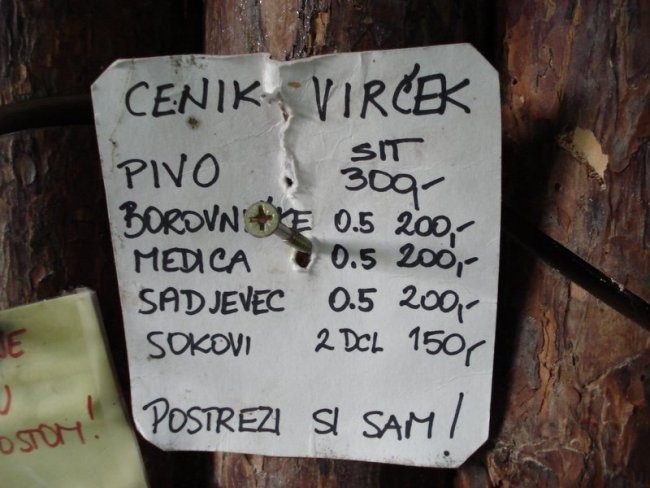 CENIK VIRČEK
SIT
PIVO 300,-
BOROVNIČKE 0.5 200,-
MEDICA 0.5 200,-
SADJEVEC 0.5 200,-
SOKOVI 2 DCL 150,-
POSTREZI SI SAM!